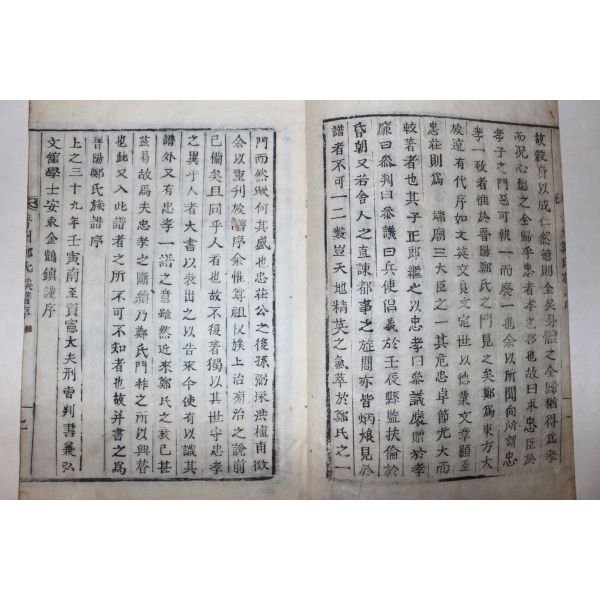 故殺身以成仁然德則全矣身體之全歸猶得爲孝
而況心德之全歸乎忠者孝之移也故曰求忠臣於
孝子之門惡可執一而廢一也余以所聞向所謂忠
孝一致者惟於晉陽鄭氏之門見之矣鄭爲東方大
族遠有代序如文英文良文定世以德業文章顯至
忠莊則爲 端廟三大臣之一其危忠卓節尤大而
較著者也其子正郎繼之以忠孝曰參議褒贈於孝
廉曰參判曰參議曰兵使倡義於壬辰縣監扶倫於
昏朝又若舍人之直諫都事之旌閭亦皆炳烺見於
譜者不可一二數豈天地精英之氣萃於鄭氏之一
門而然歟何其盛也忠莊公之後孫洪植甫徵
余以重刊族譜序余惟尊祖收族上治旁治之說前
已備矣且同乎人者也故不復著獨以其世守忠孝
之異乎人者大書以表出之以告來今使有以識其
譜外又有忠孝一譜之意雖然近來鄭氏之衰已甚
茲易故焉夫忠孝之斷續乃鄭氏門祚之所以興替
也此又入此譜者之所不可不知者也故并書之爲
晉陽鄭氏族譜序
上之三十九年壬寅南至資憲大夫刑曹判書兼弘
文館學士安東金鶴鎮謹序